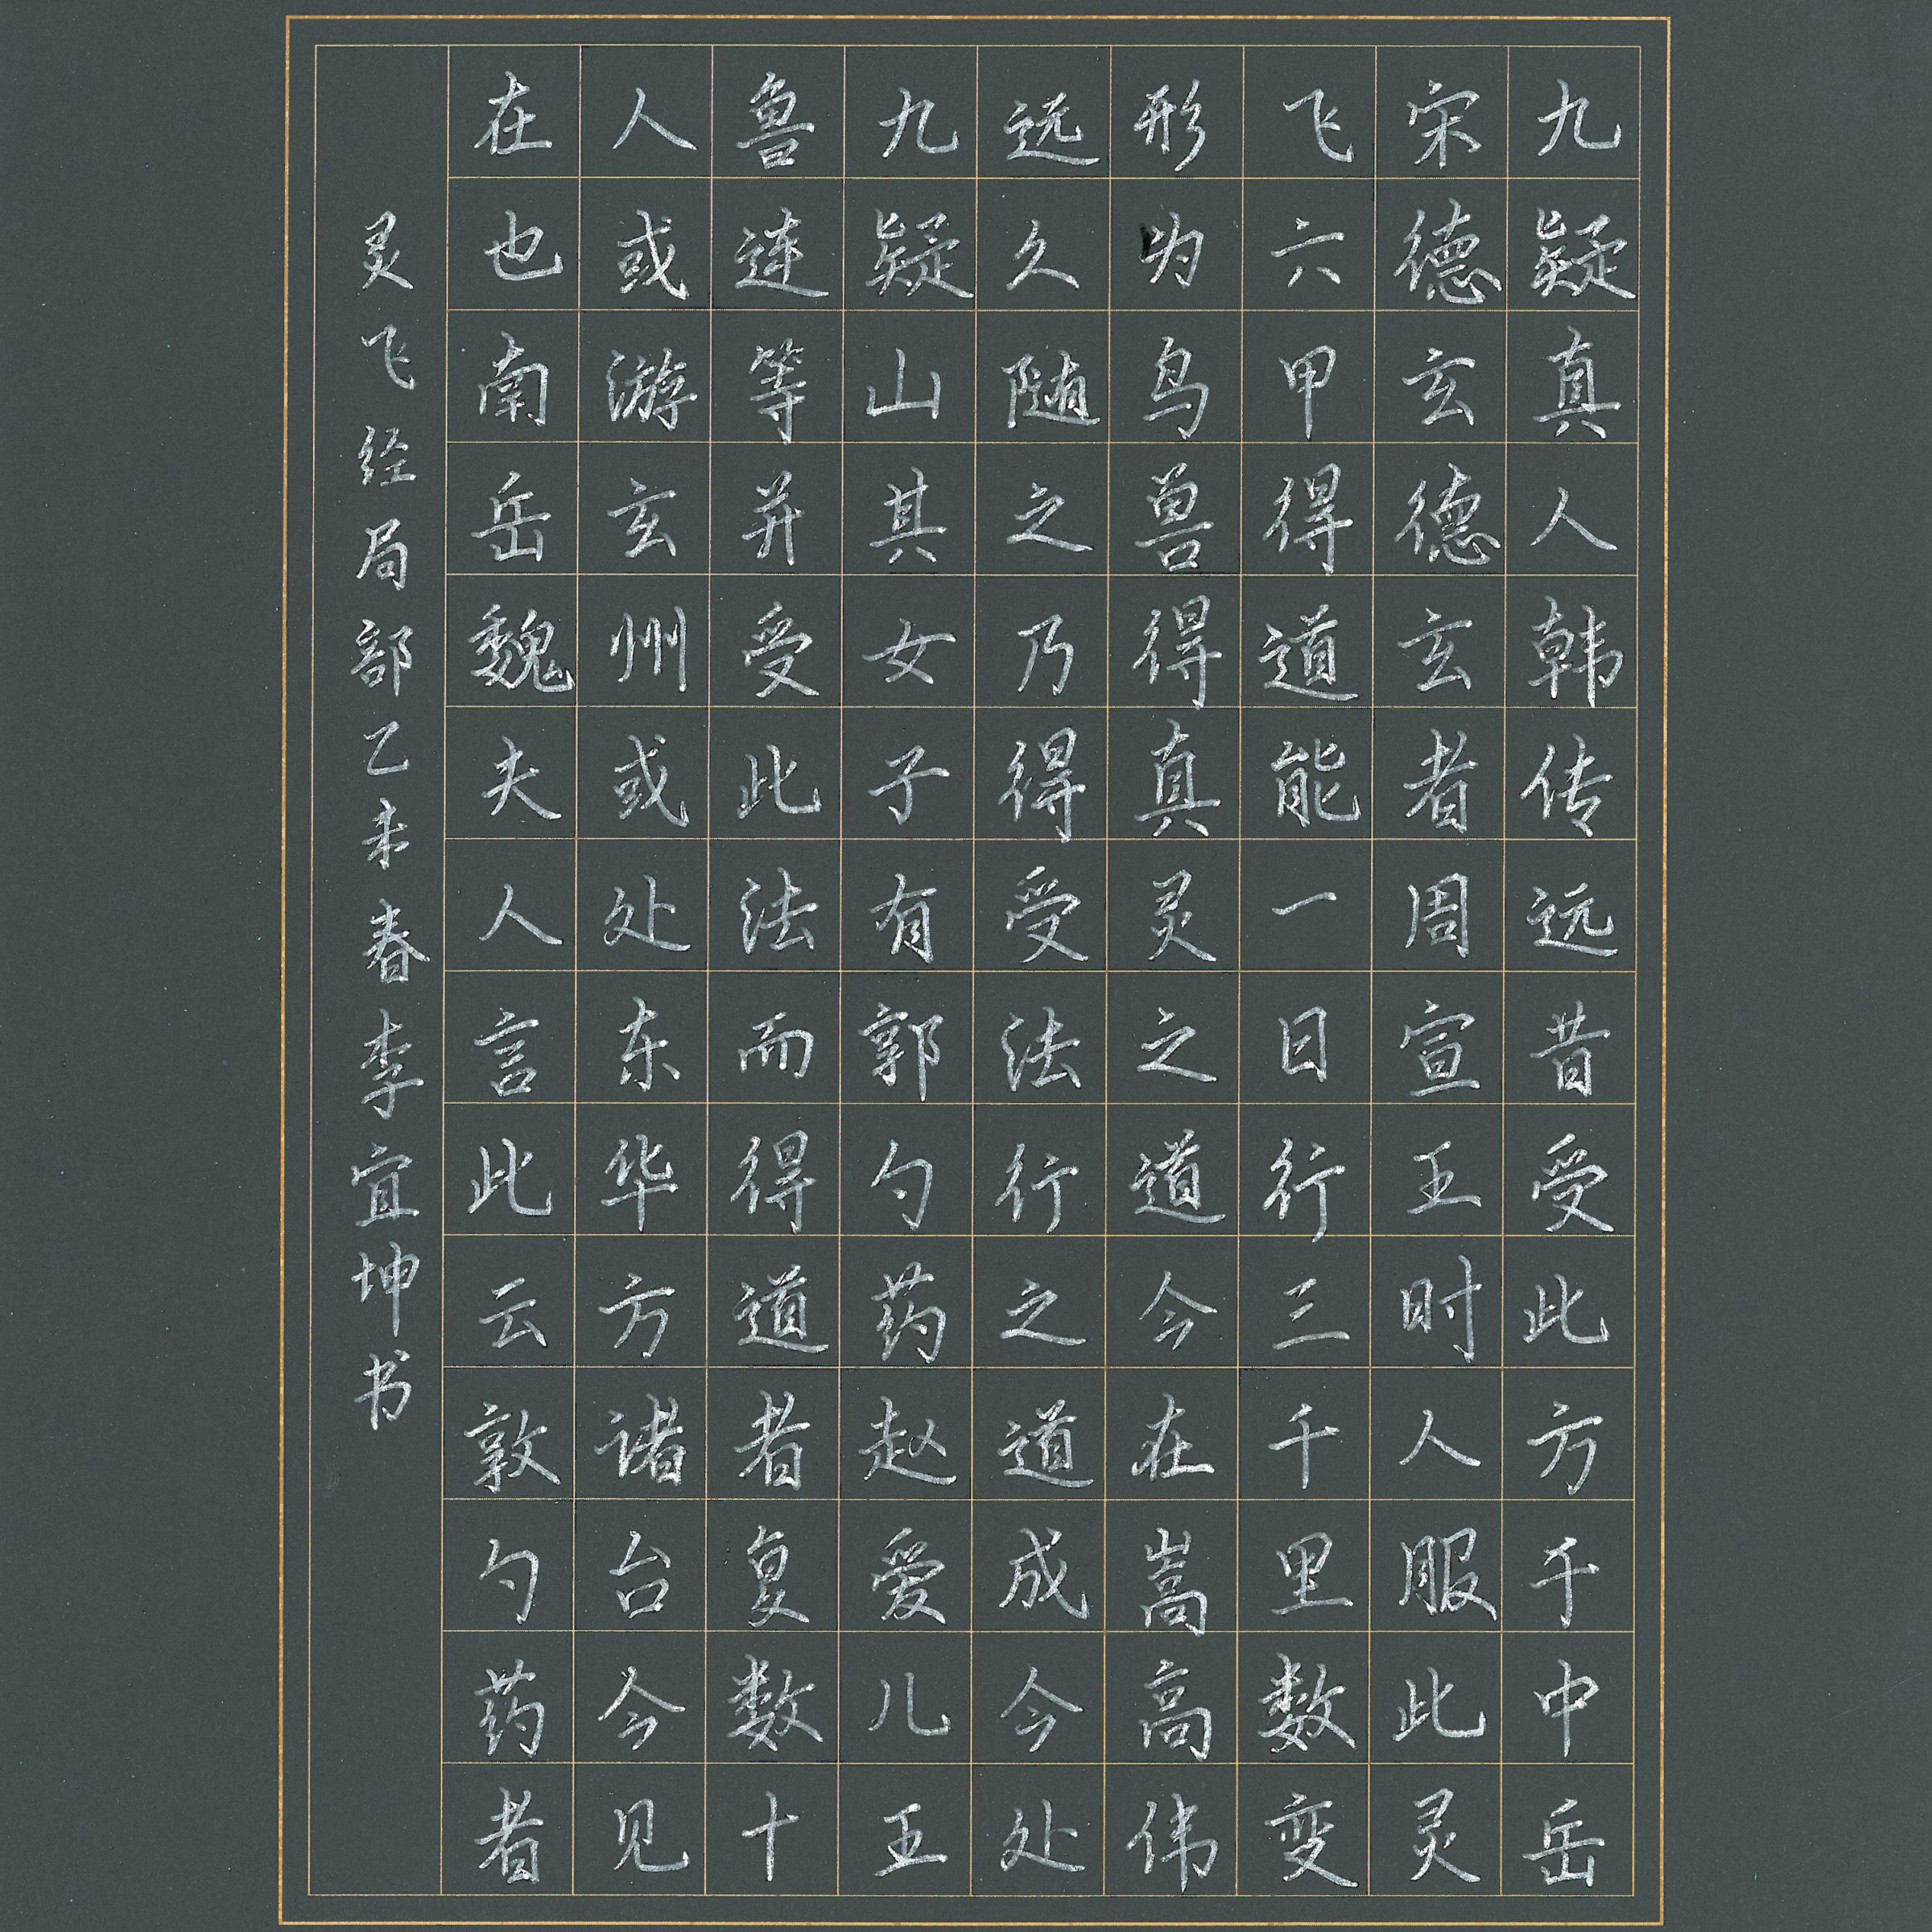 九疑真人韩传远昔受此方千中岳
宋德玄德玄者周宣王时人服此灵
飞六甲得道能一日行三千里数变
形为鸟兽得真灵之道今在嵩高伟
远久随之乃得受法行之道成今处
九疑山其女子有郭勺药赵爱儿王
鲁连等并受此法而得道者复数十
人或游玄州或处东华方诸台今见
在也南岳魏夫人言此云敦勺药者
灵飞经局部乙未春李宜坤书